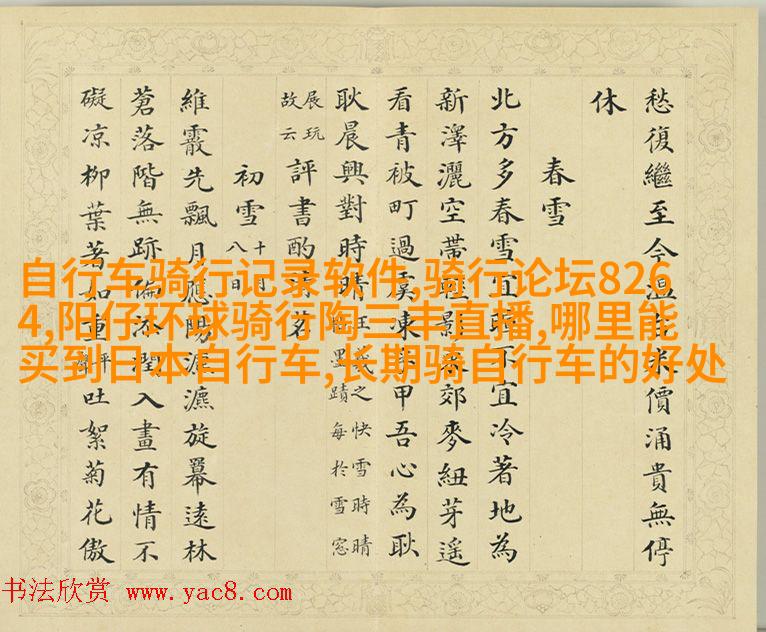 愁復繼至今温米價涌貴無停
休
春雪
北方多春雪宜不宜冷著地為
新澤灑空帶輕影郊麥紐芽遥
看青被町過虞凍甲吾心為耿
耿晨興對時晴王羲之快雪時晴
墨蹟每於雪窓
展玩
故云
評書酌清茗
初雪
十月
八日
維霰先飄月應陽漉漉旋羃遠林
蒼落階無跡偏添潤入畫有情不
礙凉柳葉著如重吐絮菊花傲
自行车骑行记录软件,骑行论坛826
4,阳仔环球骑行陶三丰直播,哪里能
买到日本自行车,长期骑自行车的好处
书法欣赏 www.yac8.com